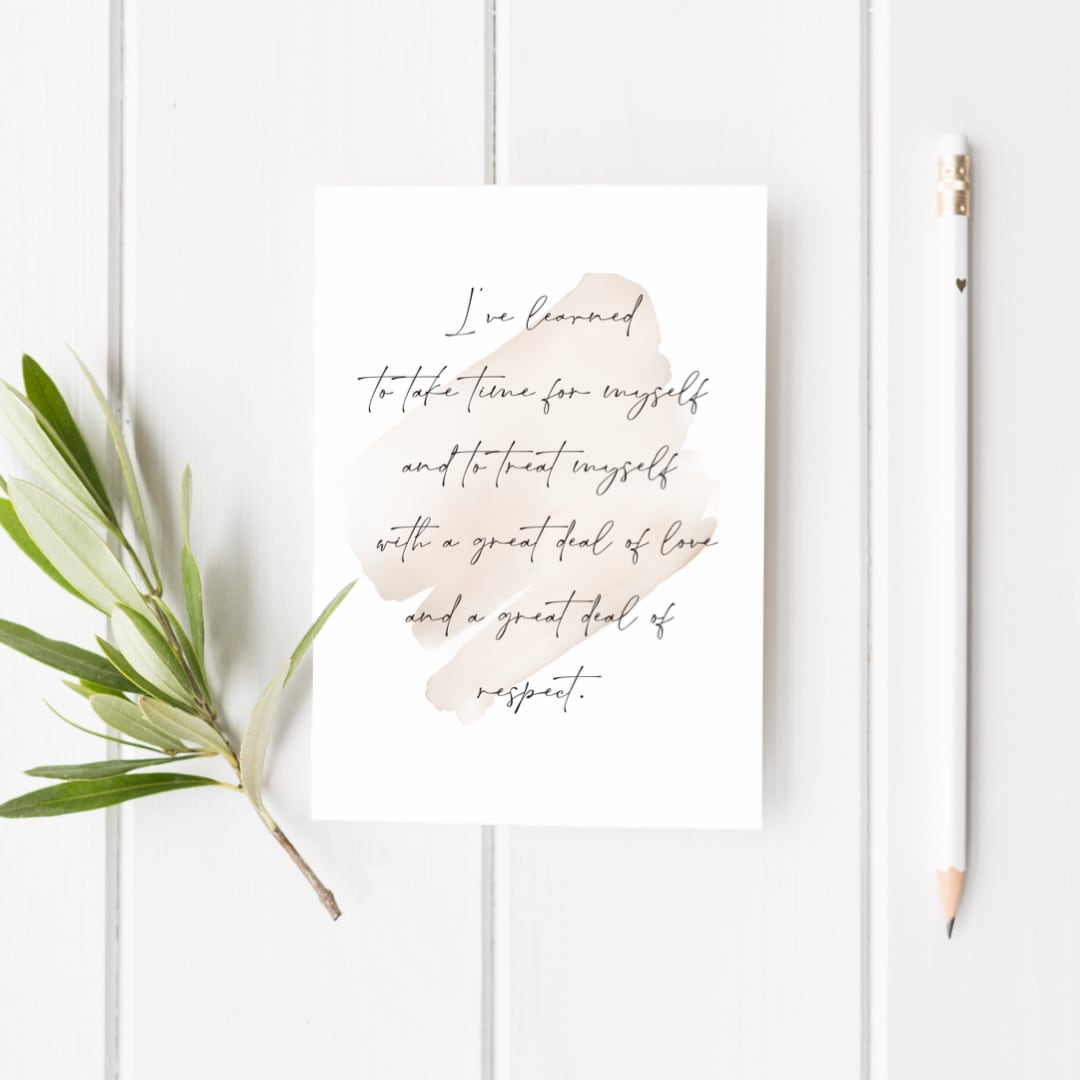 I've learned
to take time for myself
and to treat myself
with a great deal of love
and a great deal of
respect.